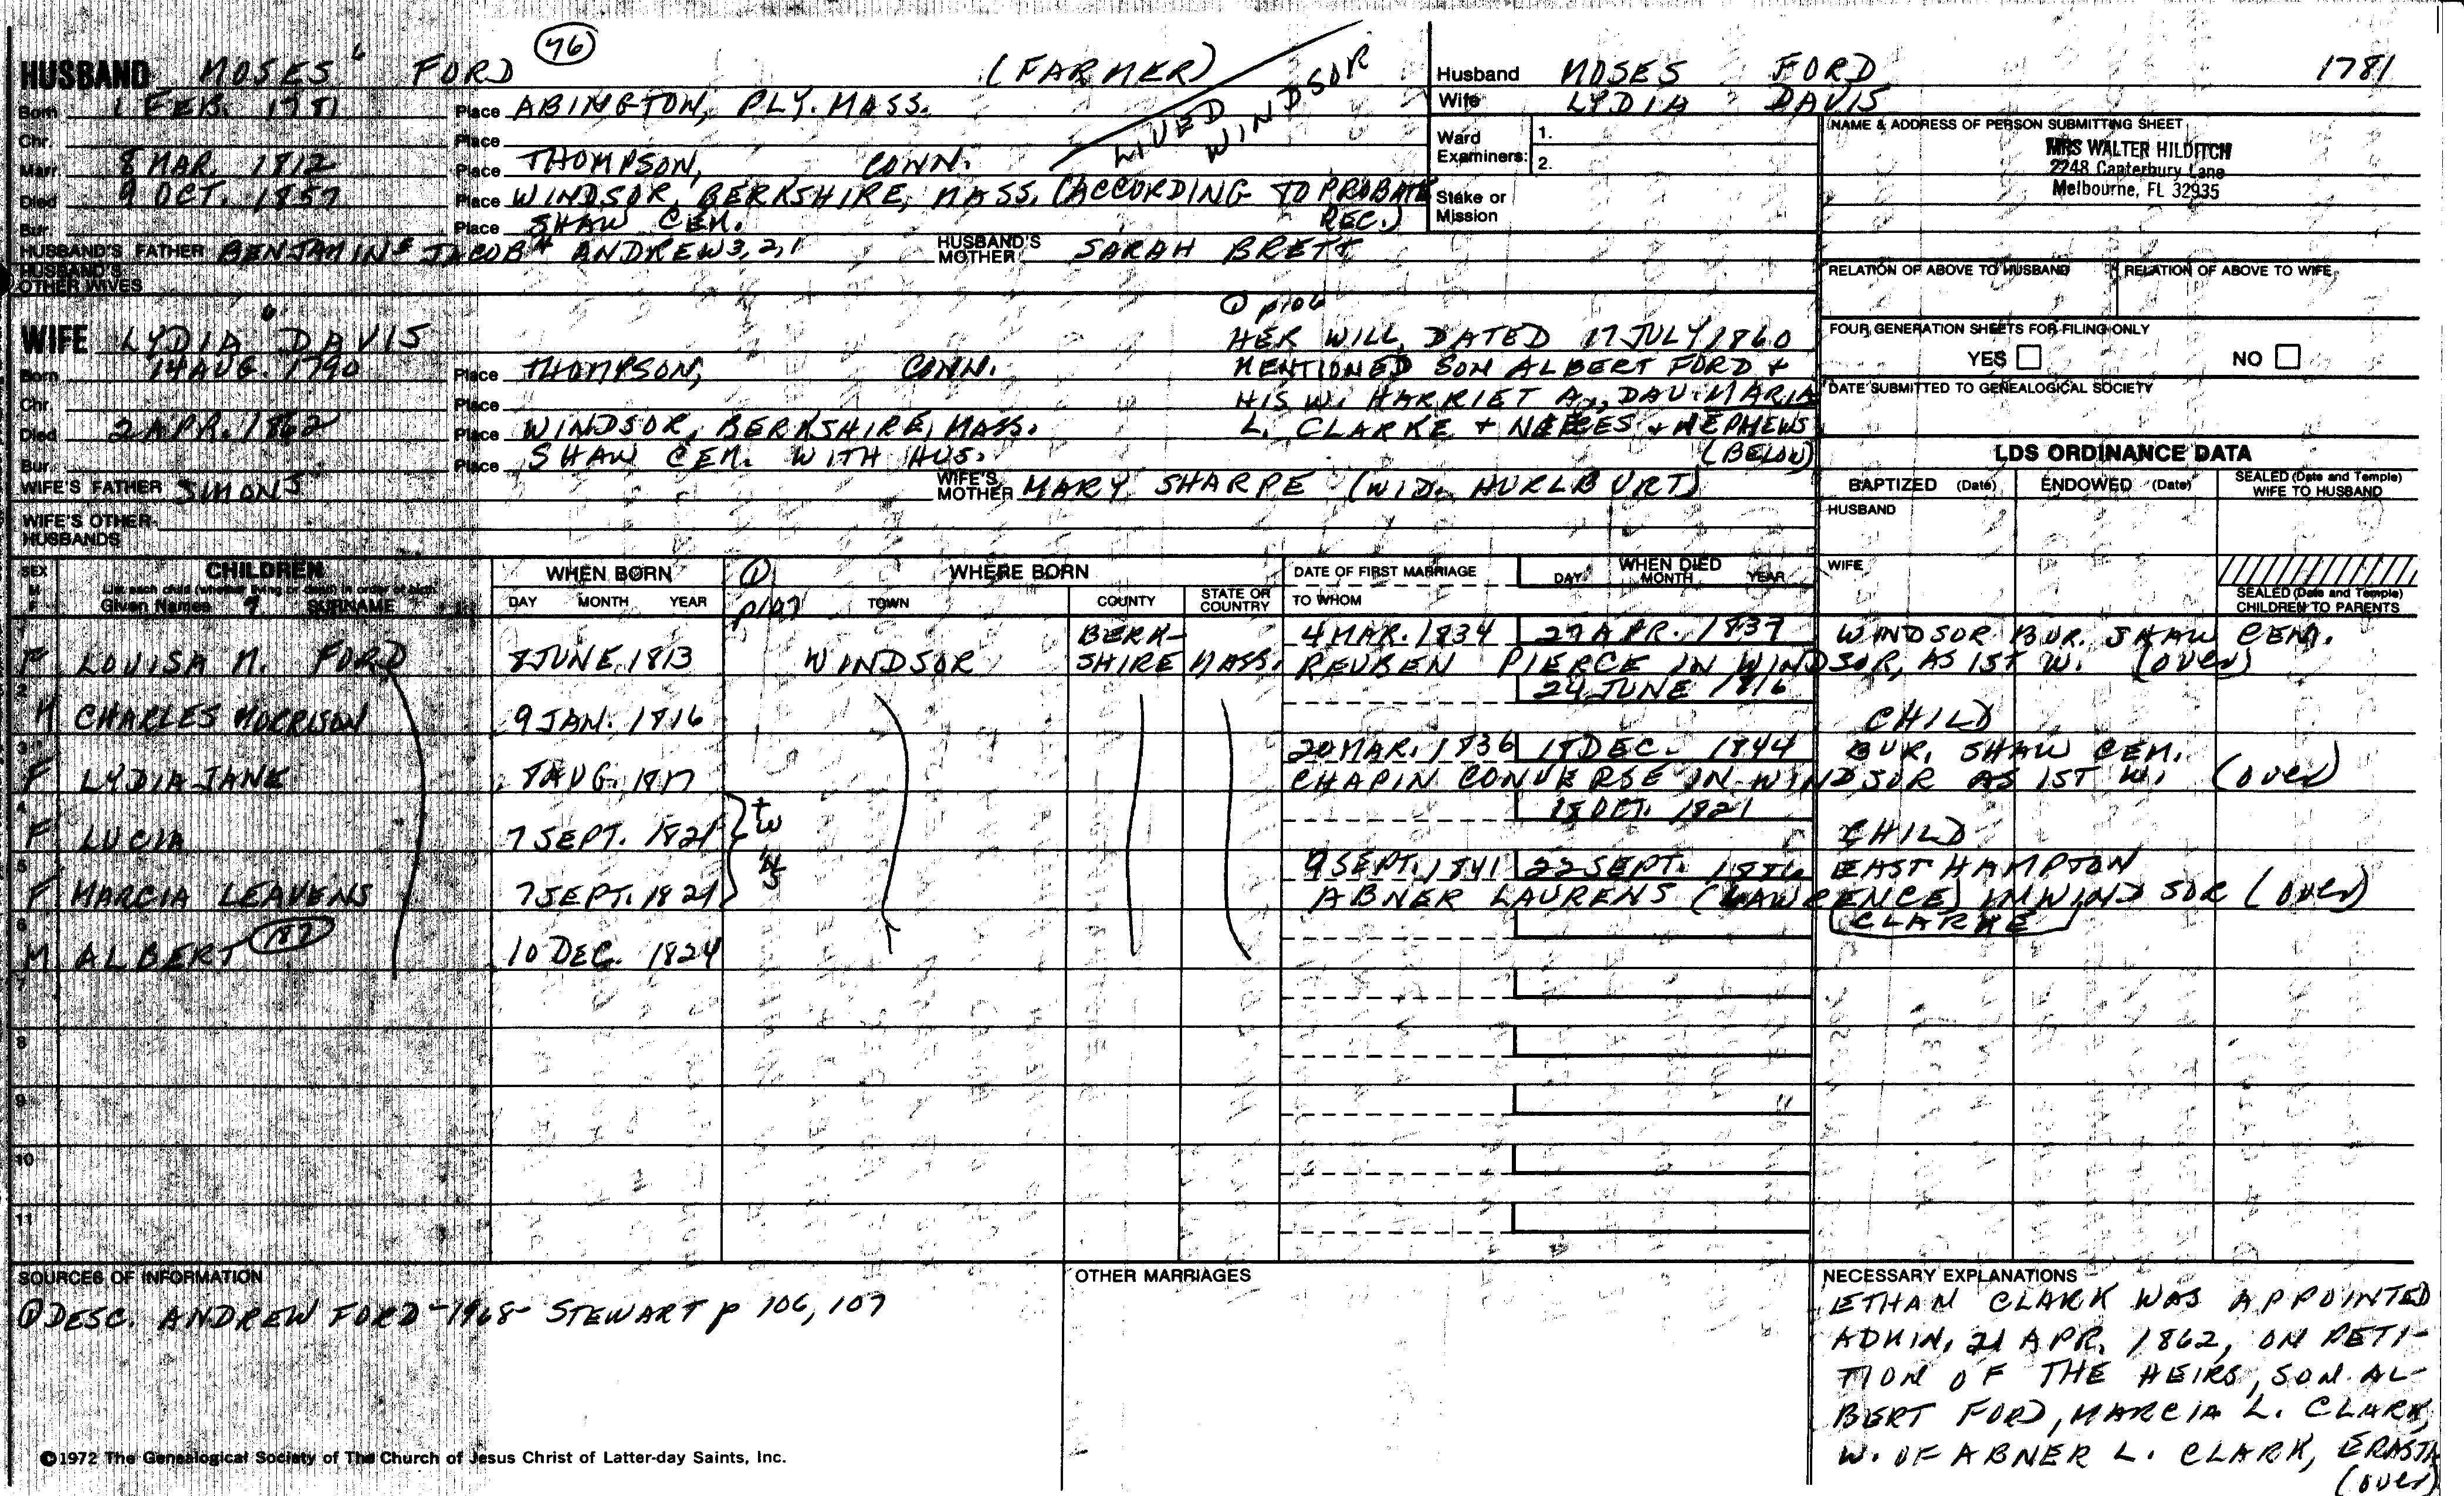 76
HUSBAND MOSES 6 FORD (FARMER)
Born 1 FEB. 1781 Place ABINGTON, PLY. MASS.
LIVED WINDSOR
Chr. Place
Marr. 8 MAR. 1812 Place THOMPSON, CONN.
Died 9 OCT. 1857 Place WINDSOR, BERKSHIRE, MASS. (ACCORDING TO PROBATE REC.)
Bur. Place SHAW CEM.
HUSBAND'S FATHER BENJAMIN 5 JACOB 4 ANDREW 3, 2, 1 HUSBAND'S MOTHER SARAH BRETT
HUSBAND'S OTHER WIVES
WIFE LYDIA 6 DAVIS
Born 14 AUG. 1790 Place THOMPSON, CONN.
Chr. Place
Died 2 APR. 1862 Place WINDSOR, BERKSHIRE, MASS.
Bur. Place SHAW CEM. WITH HUS.
① p106
HER WILL DATED 17 JULY 1860
MENTIONED SON ALBERT FORD +
HIS W. HARRIET A., DAU. MARIA
L. CLARKE + NEICES + NEPHEWS
(BELOW)
WIFE'S FATHER SIMON 5 WIFE'S MOTHER MARY SHARPE (WID. HURLBURT)
WIFE'S OTHER HUSBANDS
Husband MOSES FORD 1781
Wife LYDIA DAVIS
Ward Examiners: 1. 2.
Stake or Mission
NAME & ADDRESS OF PERSON SUBMITTING SHEET
MRS WALTER HILDITCH
2248 Canterbury Lane
Melbourne, FL 32935
RELATION OF ABOVE TO HUSBAND RELATION OF ABOVE TO WIFE
FOUR GENERATION SHEETS FOR FILING ONLY
YES NO
DATE SUBMITTED TO GENEALOGICAL SOCIETY
LDS ORDINANCE DATA
BAPTIZED (Date) ENDOWED (Date) SEALED (Date and Temple) WIFE TO HUSBAND
HUSBAND
WIFE
SEALED (Date and Temple) CHILDREN TO PARENTS
SEX M F CHILDREN WHEN BORN ① WHERE BORN DATE OF FIRST MARRIAGE WHEN DIED
List each child (whether living or dead) in order of birth
Given Names SURNAME DAY MONTH YEAR p107 TOWN COUNTY STATE OR COUNTRY TO WHOM DAY MONTH YEAR
1 BERK- 4 MAR. 1834 29 APR. 1837 WINDSOR BUR. SHAW CEM.
F LOUISA M. FORD 8 JUNE 1813 WINDSOR SHIRE MASS. REUBEN PIERCE IN WINDSOR, AS 1ST W. (over)
2 24 JUNE 1816
M CHARLES MORRISON 9 JAN. 1816 CHILD
3 20 MAR. 1836 18 DEC. 1844 BUR. SHAW CEM.
F LYDIA JANE 8 AUG. 1817 CHAPIN CONVERSE IN WINDSOR AS 1ST W. (over)
4 18 OCT. 1821
F LUCIA 7 SEPT. 1821 twins CHILD
5 9 SEPT. 1841 22 SEPT. EAST HAMPTON
F MARCIA LEAVENS 7 SEPT. 1821 ABNER LAURENS (LAWRENCE) IN WINDSOR (over)
CLARKE
6
M ALBERT 187 10 DEC. 1824
7
8
9
10
11
SOURCES OF INFORMATION
① DESC. ANDREW FORD - 1968 - STEWART p 106, 107
OTHER MARRIAGES
NECESSARY EXPLANATIONS
ETHAN CLARK WAS APPOINTED
ADMIN, 21 APR. 1862, ON PETI-
TION OF THE HEIRS, SON AL-
BERT FORD, MARCIA L. CLARK,
W. OF ABNER L. CLARK,
(over)
©1972 The Genealogical Society of The Church of Jesus Christ of Latter-day Saints, Inc.